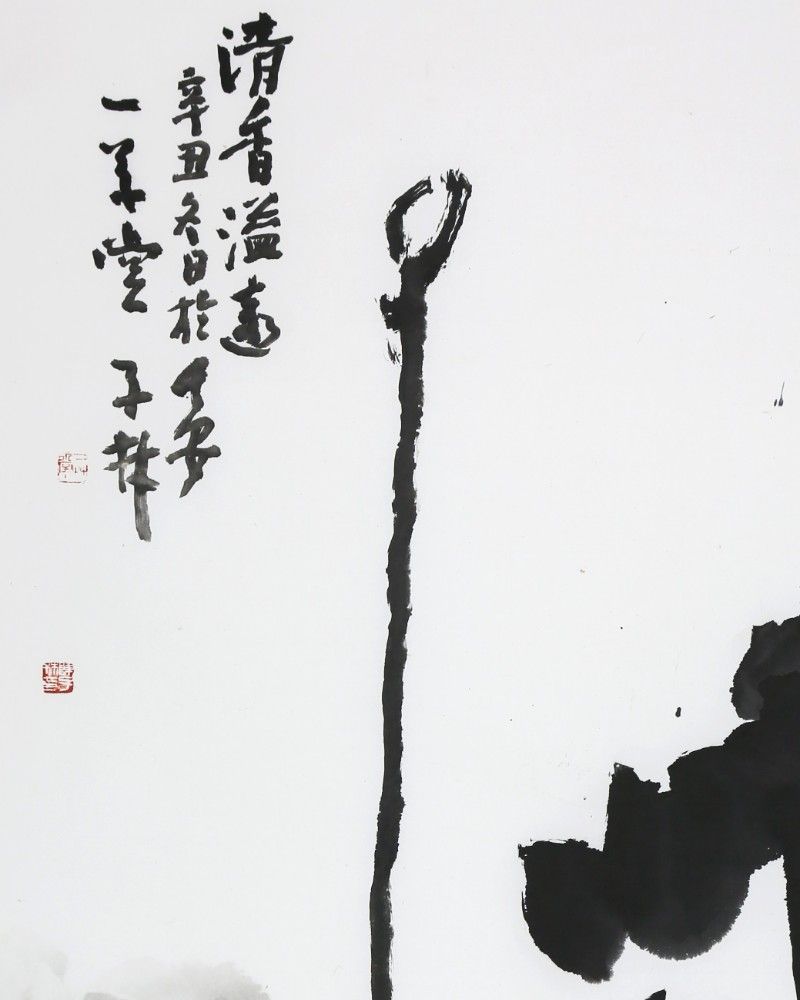 清香溢远
辛丑冬日於
一草堂 子林